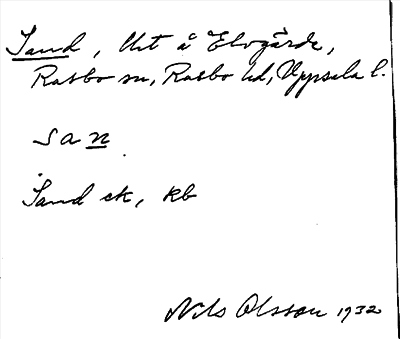 Sand, Utt å Elvgärde,
Rasbo sn, Rasbo hd, Uppsala l.
san
Sand ek, kb
Nils Olsson 1932